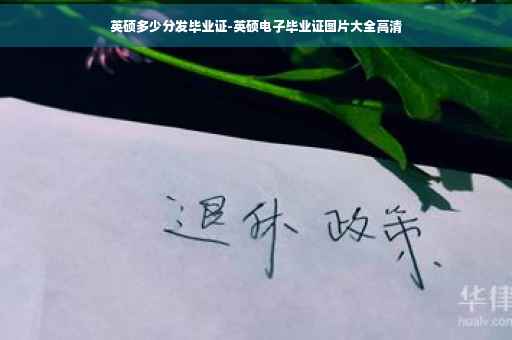 英硕多少分发毕业证-英硕电子毕业证图片大全高清
退休 政策
华律
hualv.com